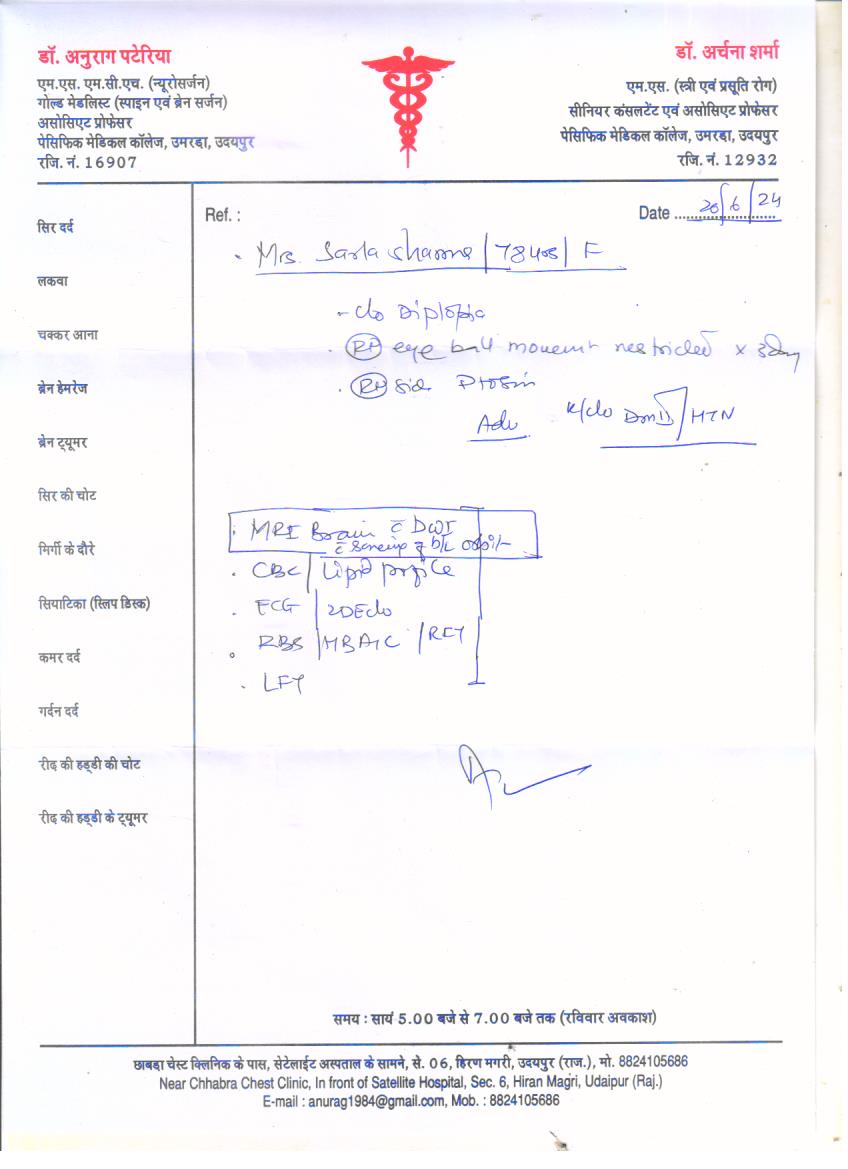 डॉ. अनुराग पटेरिया
एम.एस. एम.सी.एच. (न्यूरोसर्जन)
गोल्ड मेडलिस्ट (स्पाइन एवं ब्रेन सर्जन)
असोसिएट प्रोफेसर
पेसिफिक मेडिकल कॉलेज, उमरडा, उदयपुर
रजि. नं. 16907
डॉ. अर्चना शर्मा
एम.एस. (स्त्री एवं प्रसूति रोग)
सीनियर कंसलटेंट एवं असोसिएट प्रोफेसर
पेसिफिक मेडिकल कॉलेज, उमरडा, उदयपुर
रजि. नं. 12932
सिर दर्द
लकवा
चक्कर आना
ब्रेन हेमरेज
ब्रेन ट्यूमर
सिर की चोट
मिर्गी के दौरे
सियाटिका (स्लिप डिस्क)
कमर दर्द
गर्दन दर्द
रीढ की हड्डी की चोट
रीढ की हड्डी के ट्यूमर
Ref. :
Date 20/6/24
Mrs. Sarla Sharma / 78 / F
- c/o Diplopia
Rt eye ball movement restricted x 3day
Rt side Ptosis
Adv K/c/o DM II / HTN
MRI Brain c̄ DWI
c̄ b/L
CBC / Lipid profile
ECG / 2DEcho
RBS / HBA1C / RFT
LFT
समय : सायं 5.00 बजे से 7.00 बजे तक (रविवार अवकाश)
छाबड़ा चेस्ट क्लिनिक के पास, सेटेलाईट अस्पताल के सामने, से. 06, हिरण मगरी, उदयपुर (राज.), मो. 8824105686
Near Chhabra Chest Clinic, In front of Satellite Hospital, Sec. 6, Hiran Magri, Udaipur (Raj.)
E-mail : anurag1984@gmail.com, Mob. : 8824105686